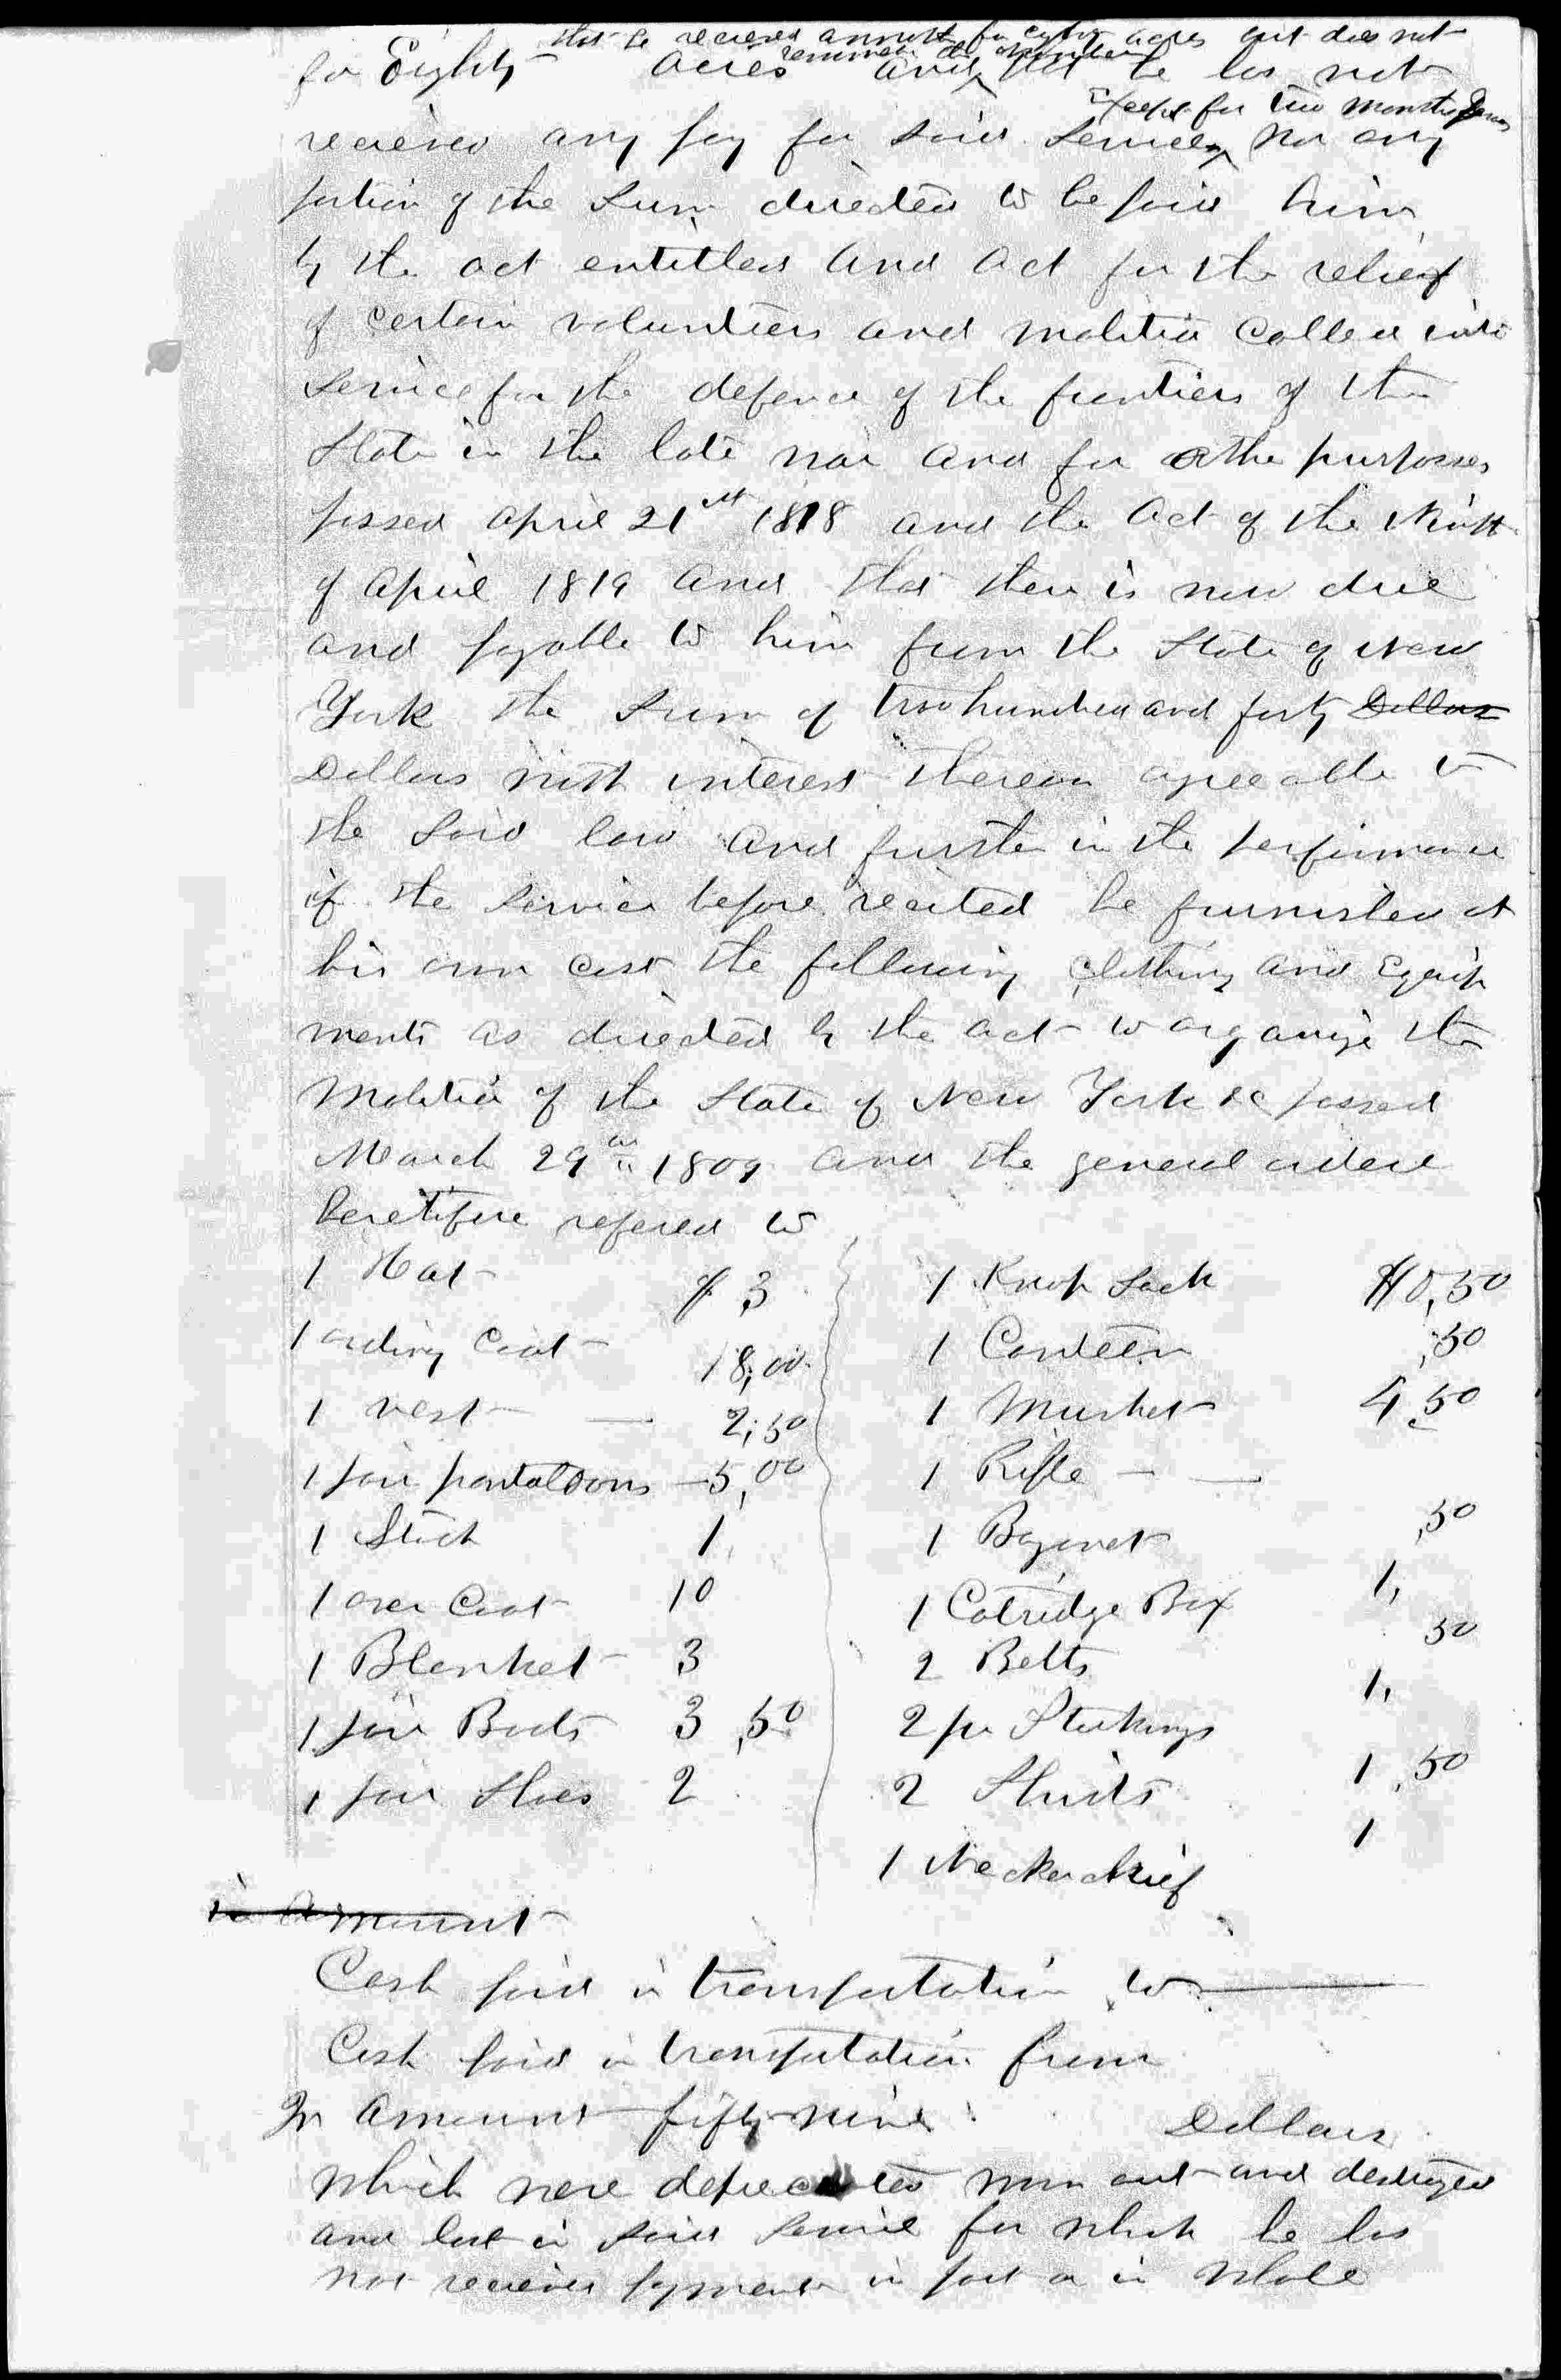 that he received a warrant for eighty acres but does not
remember the number
for Eighty acres and that he has not
Except for two months service
received any pay for said Services nor any
portion of the Sum directed to be paid him
by the act entitled and act for the relief
of certain volunteers and malitia called into
Service for the defence of the frontiers of the
State in the late war and for othe purposes
passed april 21st 1818 and the act of the Ninth
of april 1819 and that there is now due
and payable to him from the State of New
York the Sum of two hundred and forty Dollars
Dollars with interest thereon agreeable to
the said law and further in the performance
of the Service before recited he furnished at
his own cost the following clothing and Equip
ments as directed by the act to organize the
Malitia of the State of New York &c passed
March 29th 1809 and the general orders
heretofore refered to
1 Hat $ 3
1 Coat 18,00
1 vest 2,50
1 pair pantaloons 5,00
1 Stock 1
1 over Coat 10
1 Blanket 3
1 pair Boots 3,50
1 pair Shoes 2
1 Knap Sack $0,50
1 Canteen ,50
1 Musket 4,50
1 Rifle
1 Bayonet ,50
1 Catridge Box 1,
2 Belts 50
2 pr Stockings 1,
2 Shirts 1,50
1 Neckerchief 1
in Amount
Cash paid in transportation to
Cash paid in transportation from
In Amount fifty nine Dollars
which were depreciated worn out and destroyed
and lost in said Service for which he has
not received payment in part or in whole